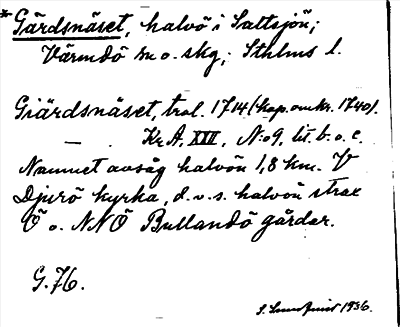 * Gärdsnäset, halvö i Saltsjön;
Värmdö sn o. skg; Sthlms l.
Giärdsnäset, trol. 1714 (kop. omkr. 1740).
— KrA. XVII, N:o 9, lit. b. o. c.
Namnet avsåg halvön 1,8 km. V
Djurö kyrka, d.v.s. halvön strax
Ö o. NNÖ Bullandö gårdar.
G. 76.
S. Lundquist 1936.